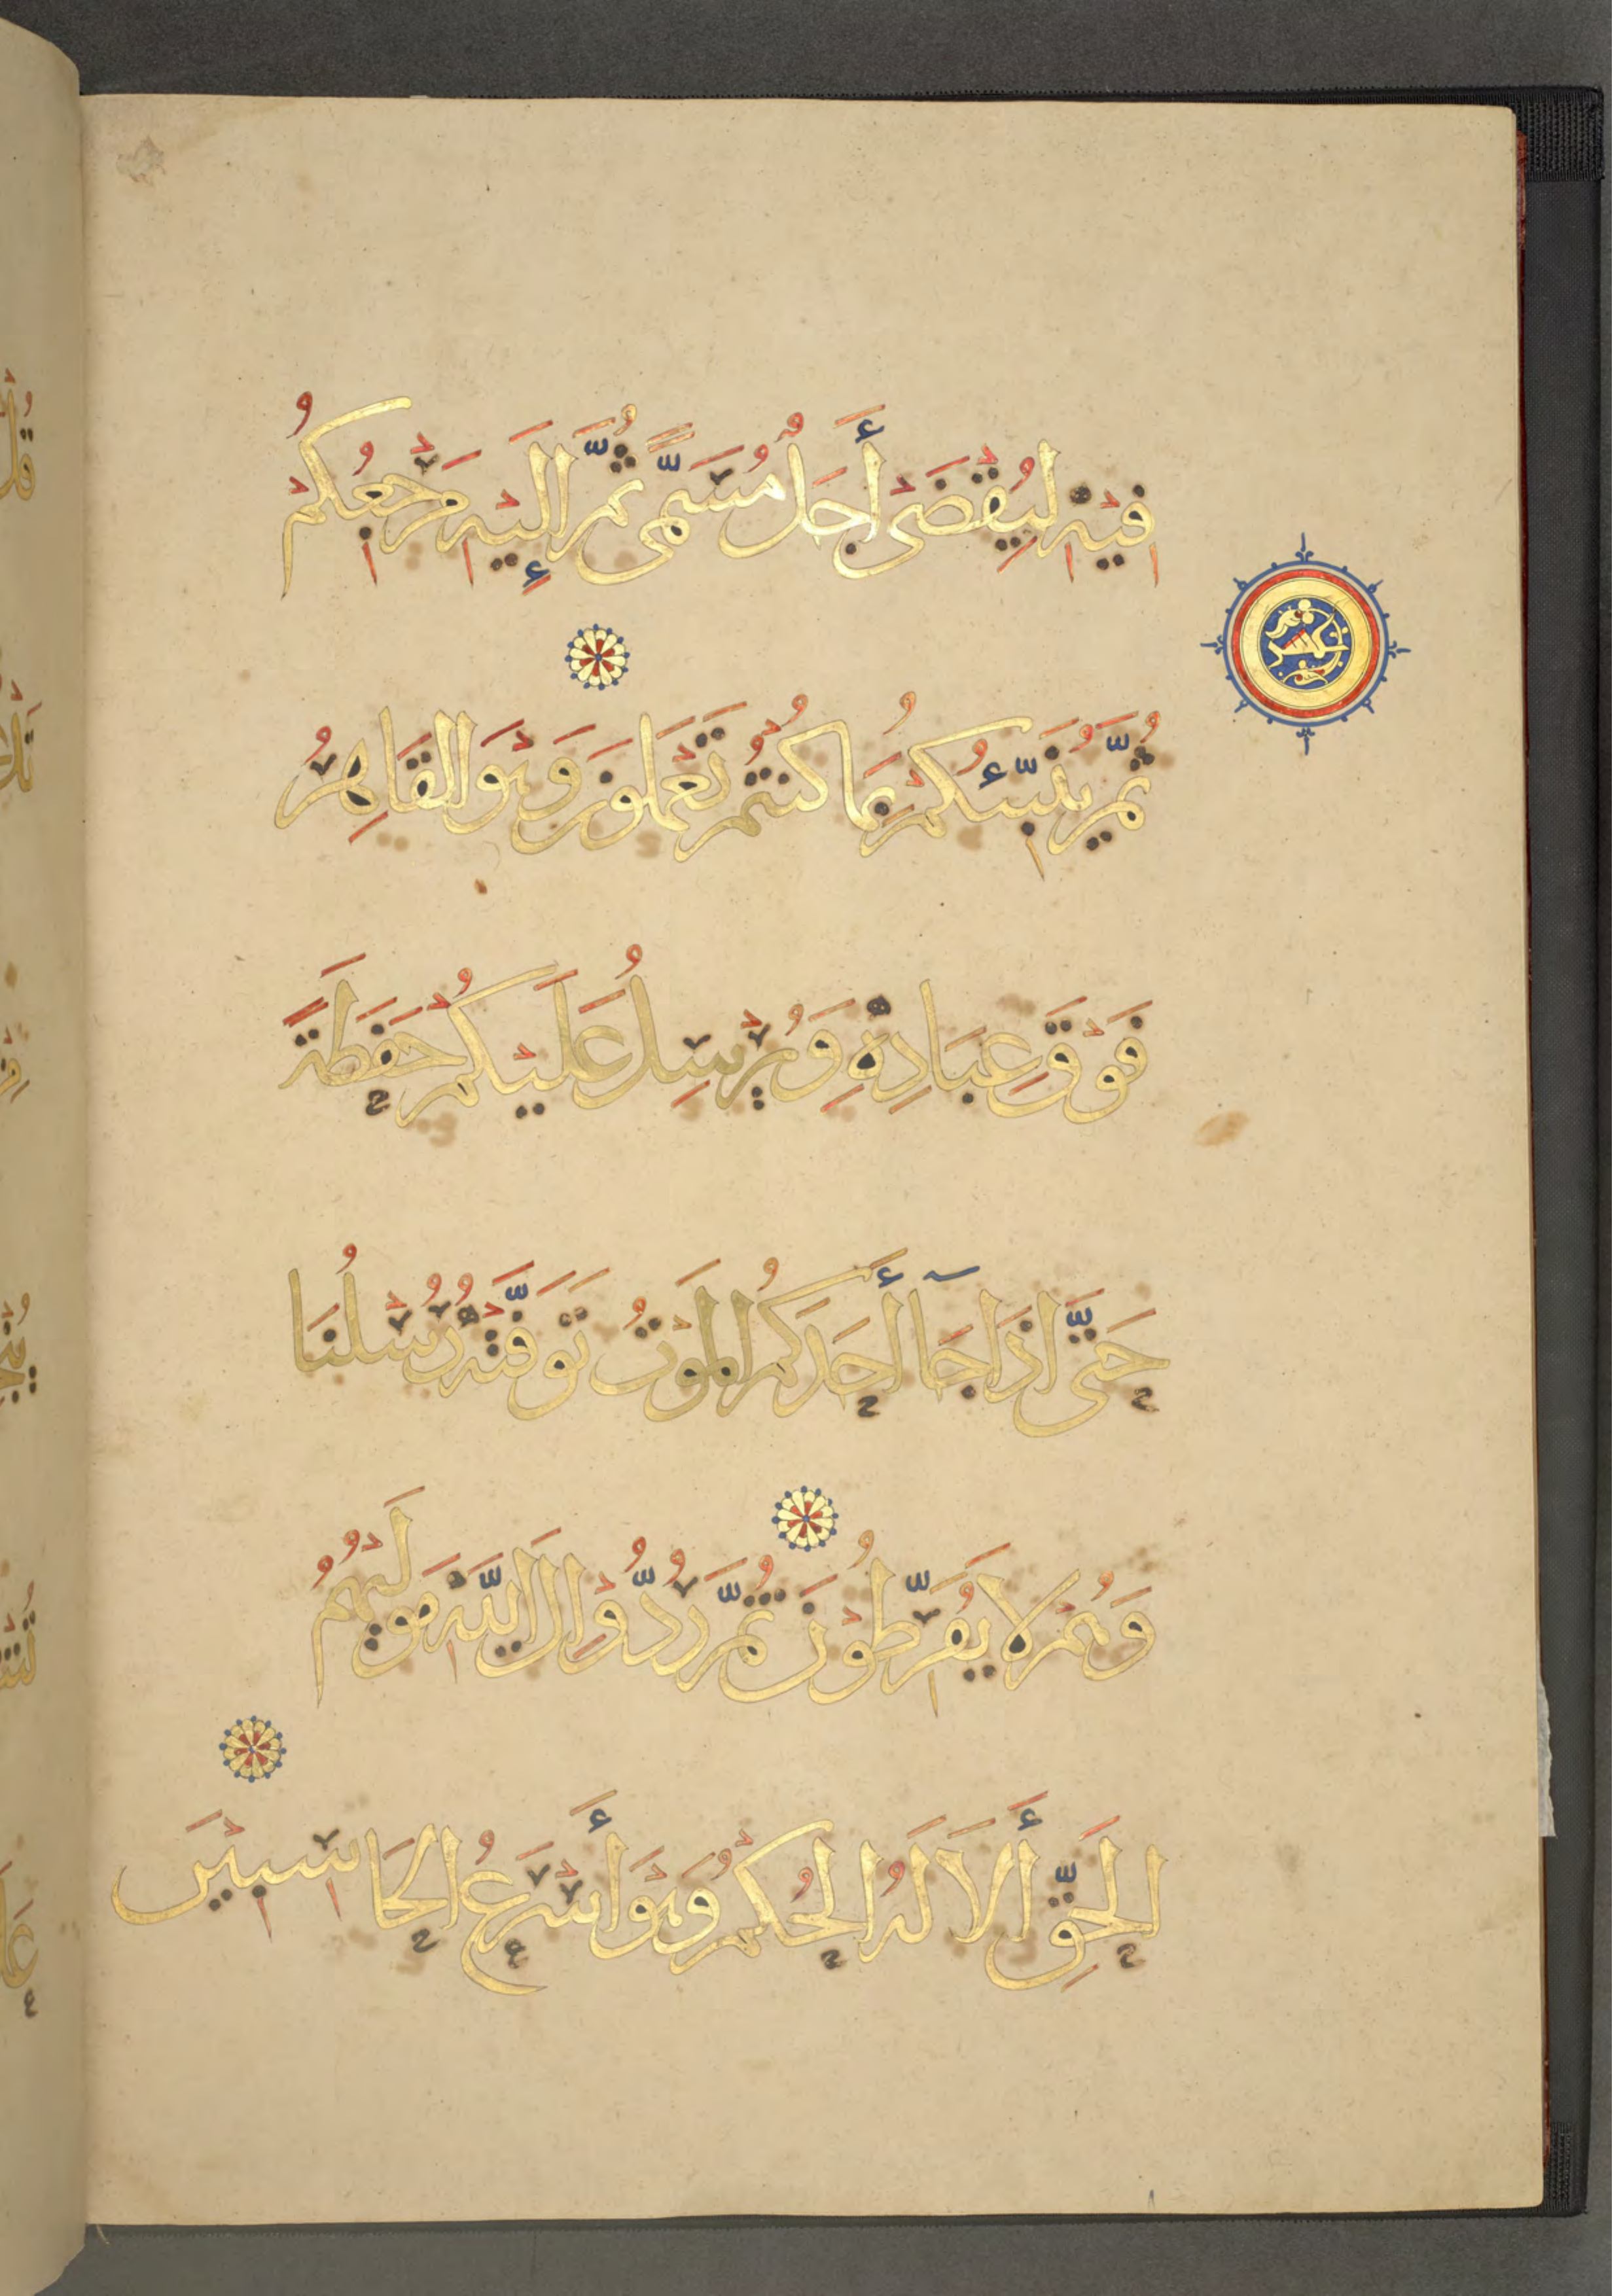 فِيهِ لِيُقْضَىٰ أَجَلٌ مُسَمًّى ثُمَّ إِلَيْهِ مَرْجِعُكُمْ
ثُمَّ يُنَبِّئُكُمْ بِمَا كُنْتُمْ تَعْمَلُونَ وَهُوَ الْقَاهِرُ
فَوْقَ عِبَادِهِ وَيُرْسِلُ عَلَيْكُمْ حَفَظَةً
حَتَّى إِذَا جَآ أَحَدَكُمُ الْمَوْتُ تَوَفَّتْهُ رُسُلُنَا
وَهُمْ لَا يُفَرِّطُونَ ثُمَّ رُدُّوا إِلَى اللَّهِ مَوْلَيهُمُ
الْحَقِّ أَلَا لَهُ الْحُكْمُ وَهُوَ أَسْرَعُ الْحَاسِبِينَ